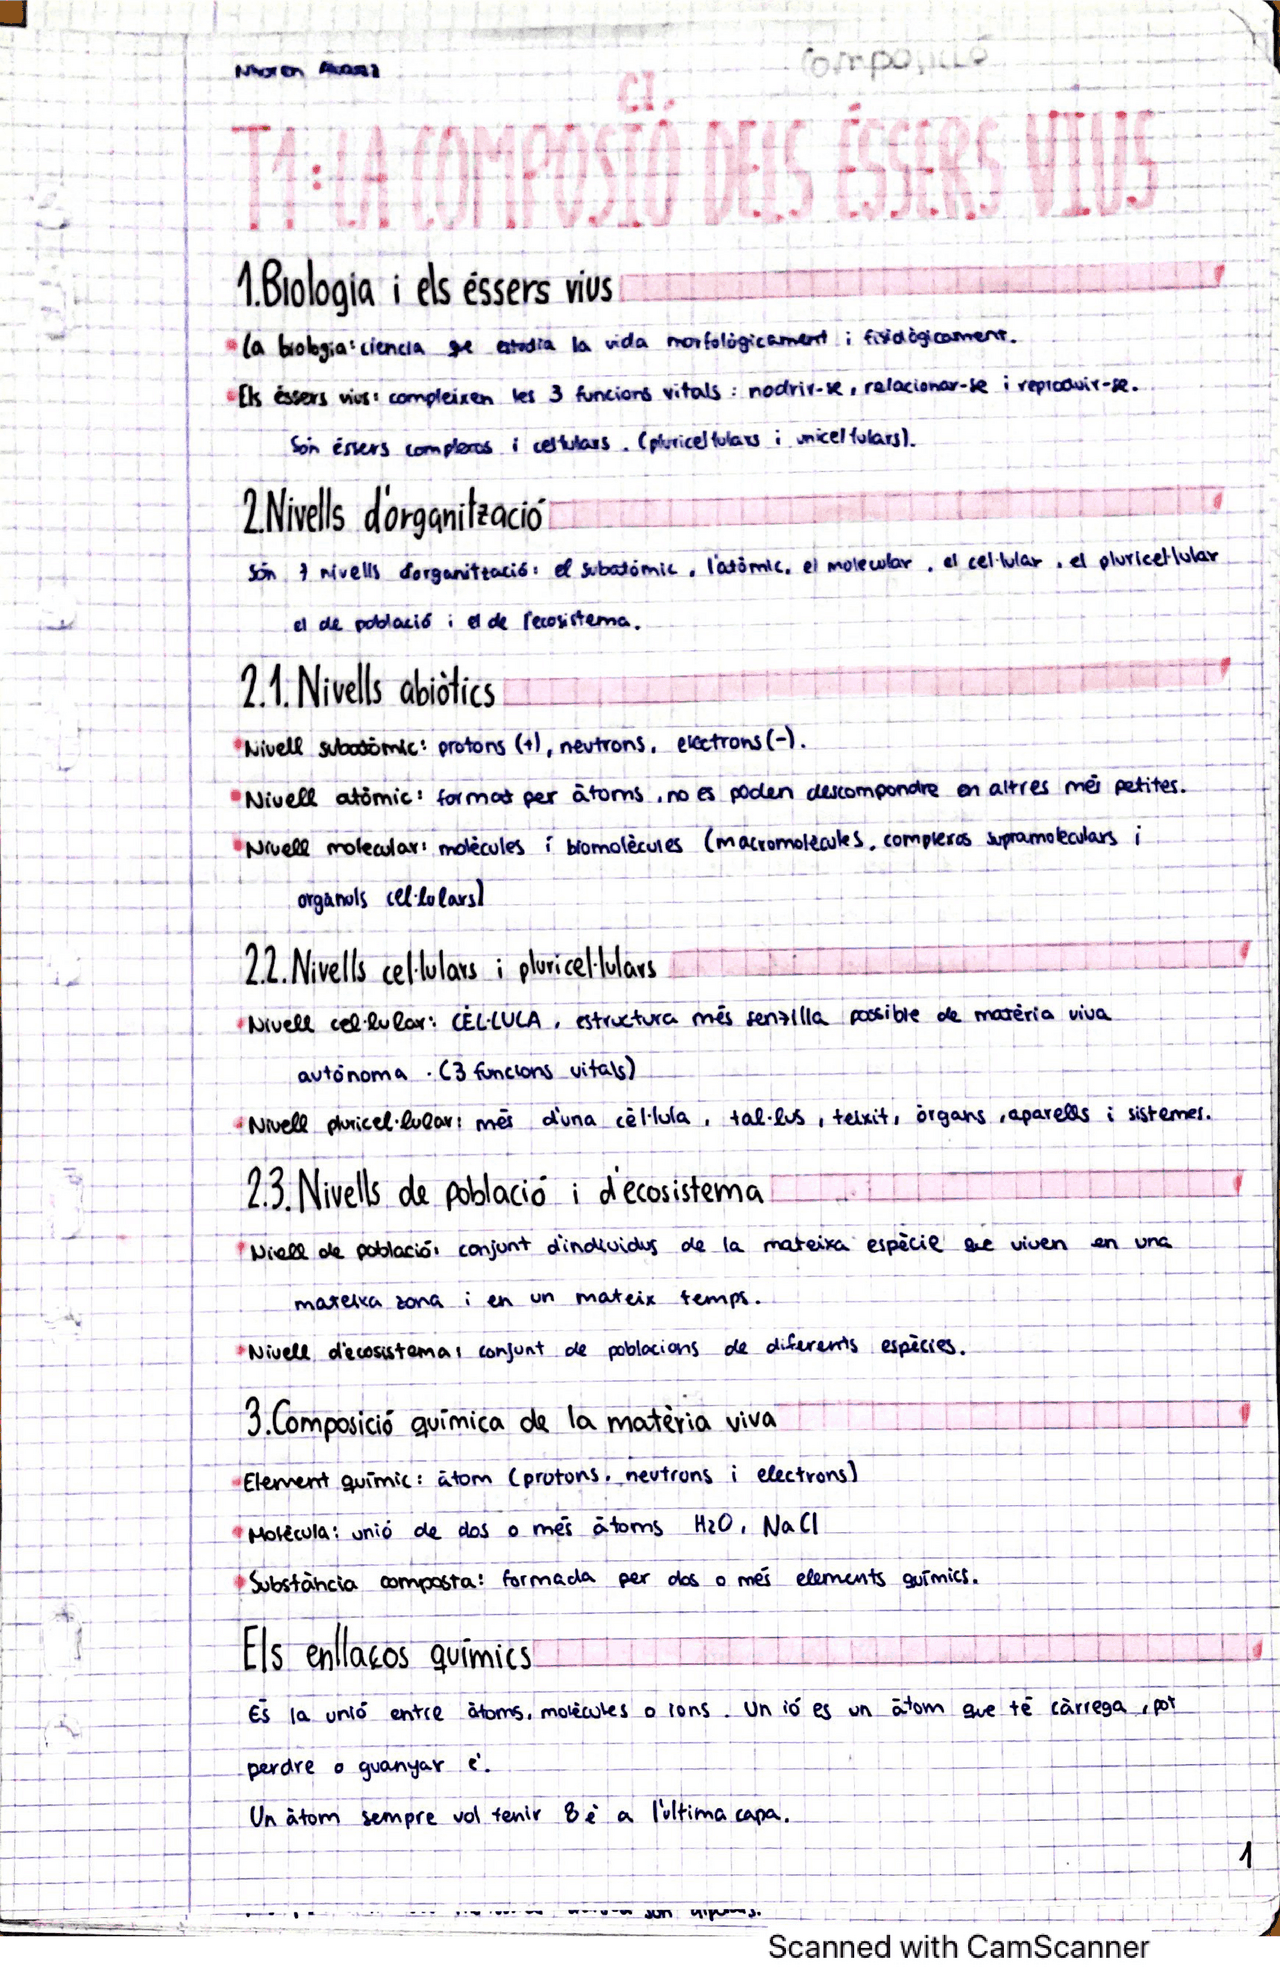 Composició
CI.
T1: LA COMPOSIÓ DELS ÉSSERS VIUS
1.Biologia i els éssers vius
La biologia: ciencia que estudia la vida morfològicament i fisiològicament.
Els éssers vius: compleixen les 3 funcions vitals: nodrir-se, relacionar-se i reproduir-se.
Són éssers complexos i cel·lulars. (pluricel·lulars i unicel·lulars).
2.Nivells d'organització
Són 7 nivells d'organització: el subatòmic, l'atòmic, el molecular, el cel·lular, el pluricel·lular
el de població i el de l'ecosistema.
2.1. Nivells abiòtics
Nivell subatòmic: protons (+), neutrons, electrons (-).
Nivell atòmic: format per àtoms, no es poden descompondre en altres més petites.
Nivell molecular: molècules i biomolècules (macromolècules, complexos supramoleculars i
orgànuls cel·lulars)
2.2. Nivells cel·lulars i pluricel·lulars
Nivell cel·lular: CÈL·LULA, estructura més senzilla possible de matèria viva
autònoma. (3 funcions vitals)
Nivell pluricel·lular: més d'una cèl·lula, tal·lus, teixit, òrgans, aparells i sistemes.
2.3. Nivells de població i d'ecosistema
Niell de població: conjunt d'individus de la mateixa espècie que viven en una
mateixa zona i en un mateix temps.
Nivell d'ecosistema: conjunt de poblacions de diferents espècies.
3.Composició química de la matèria viva
Element químic: àtom (protons, neutrons i electrons)
Molècula: unió de dos o més àtoms H2O, NaCl
Substància composta: formada per dos o més elements químics.
Els enllaços químics
És la unió entre àtoms, molècules o ions. Un ió es un àtom que té càrrega, pot
perdre o guanyar e-.
Un àtom sempre vol tenir 8 e- a l'última capa.
1
Scanned with CamScanner